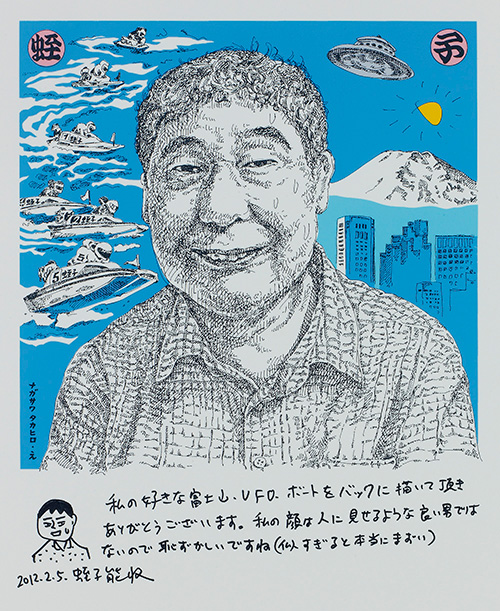 蛭
子
ナガサワ タカヒロ・え
私の好きな富士山、UFO、ボートをバックに描いて頂き
ありがとうございます。私の顔は人に見せるような良い男では
ないので恥ずかしいですね(似すぎると本当にまずい)
2012.2.5. 蛭子能収